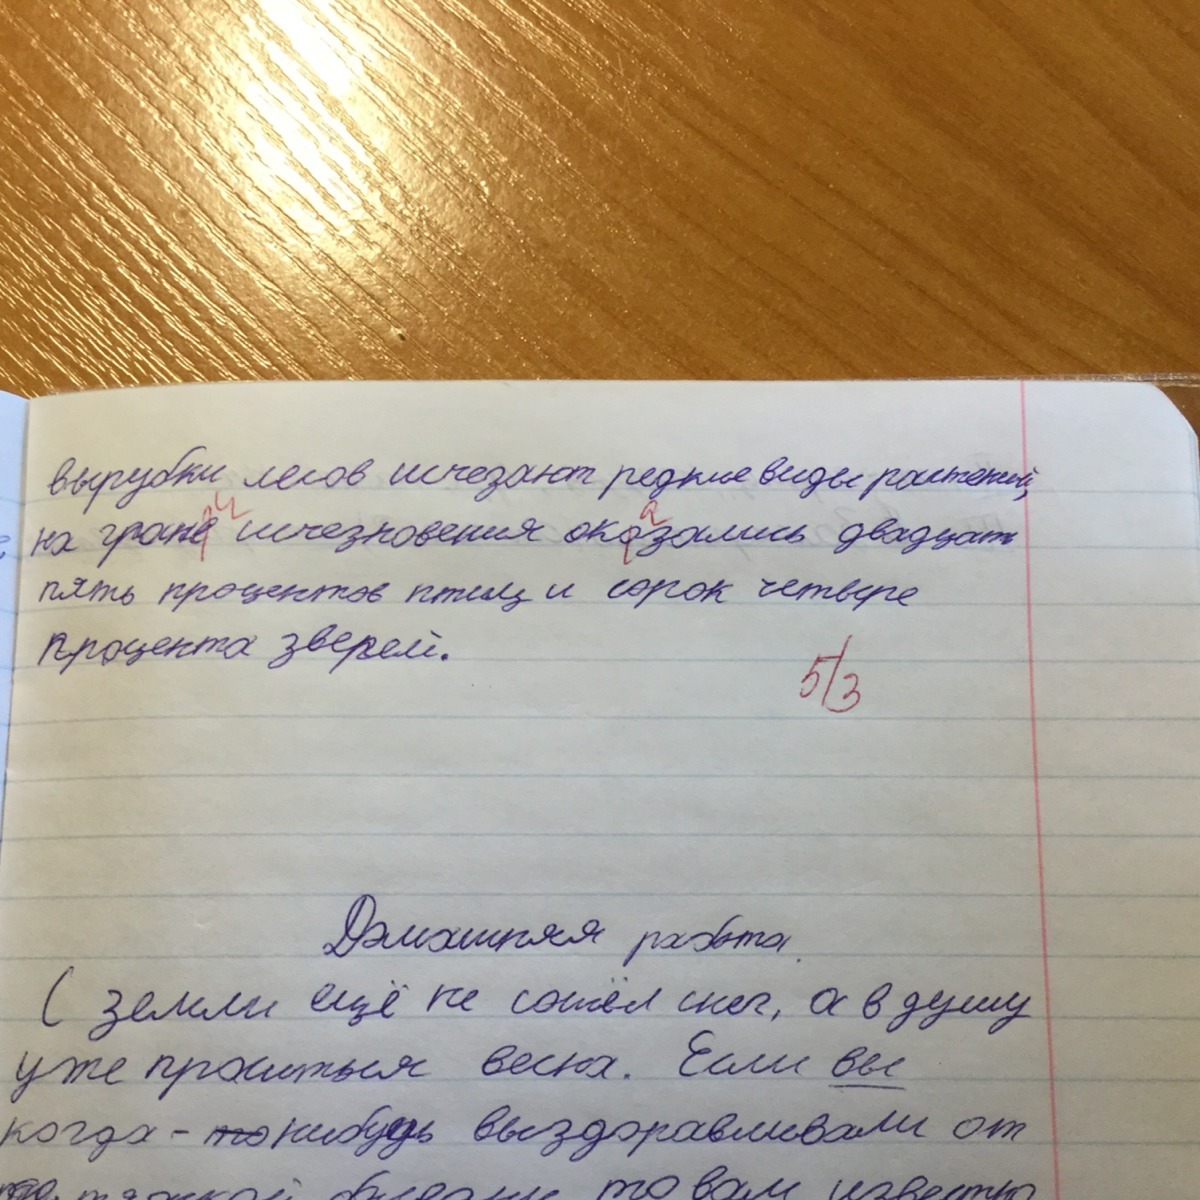 вырубки лесов исчезают редкие виды растений,
на гране и исчезновения окозались а двадцать
пять процентов птиц и сорок четыре
процента зверей.
5/3
Домашняя работа.
С земли ещё не сошёл снег, а в душу
уже проситься весна. Если вы
когда-то нибудь выздоравливали от
тяжкой болезни то вам известно